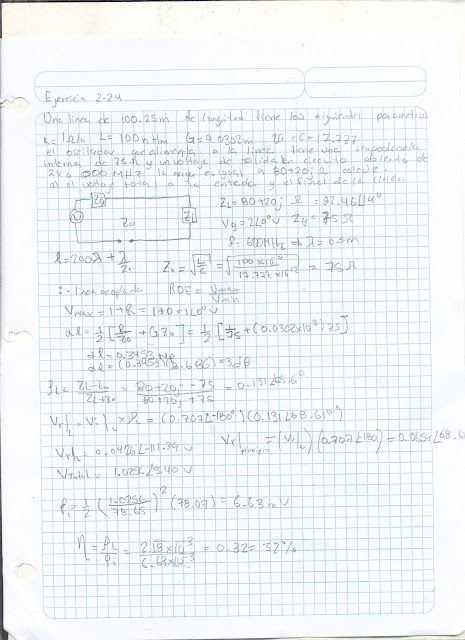 Ejercicio 2-24
Una linea de 100.25m de longitud tiene los siguientes parametros
L= 100 nH/m
el oscilador que alimenta a la linea tiene una impedancia
interna de 75Ω y un voltaje de salida en circuito abierto de
2V a 600 MHz la carga es igual a 80+20j Ω calcule
a) el voltaje total a la entrada y el final de la linea.
Zg
Z0
ZL
ZL = 80+20j Ω = 82.46∠14°
Vg = 2∠0° V Zg = 75Ω
f= 600MHz ⇒ λ= 0.5m
l=200λ + λ/2
Z0 = √L/C = √ = 75Ω
∴ linea acoplada ROE = Vmax/Vmin
Vmax = 1+R = 1+0 = 1∠0° v
αl = 1/2 [R/Z0 + GZ0] = 1/2 [1/75 + 75]
αl = 0.3453 Np
αl = (0.3453)(8.686) = 3dB
ρL = ZL-Z0/ZL+Z0 = 80+20j - 75/80+20j+75 = 0.131∠68.6°
Vr|L = Vi|L × ρL = (0.707∠-180°)(0.131∠68.61°)
Vr|L = 0.0926∠-111.39 V
Vr|principio = (Vr|L)(0.707∠180) = 0.0654∠68.61
Vtotal = 1.0256∠3.40 V
Pi = 1/2 (1.0256/78.65)² (78.07) = 6.63 m
η = PL/Pi = 2.18×10⁻³/6.63×10⁻³ = 0.32 = 32%